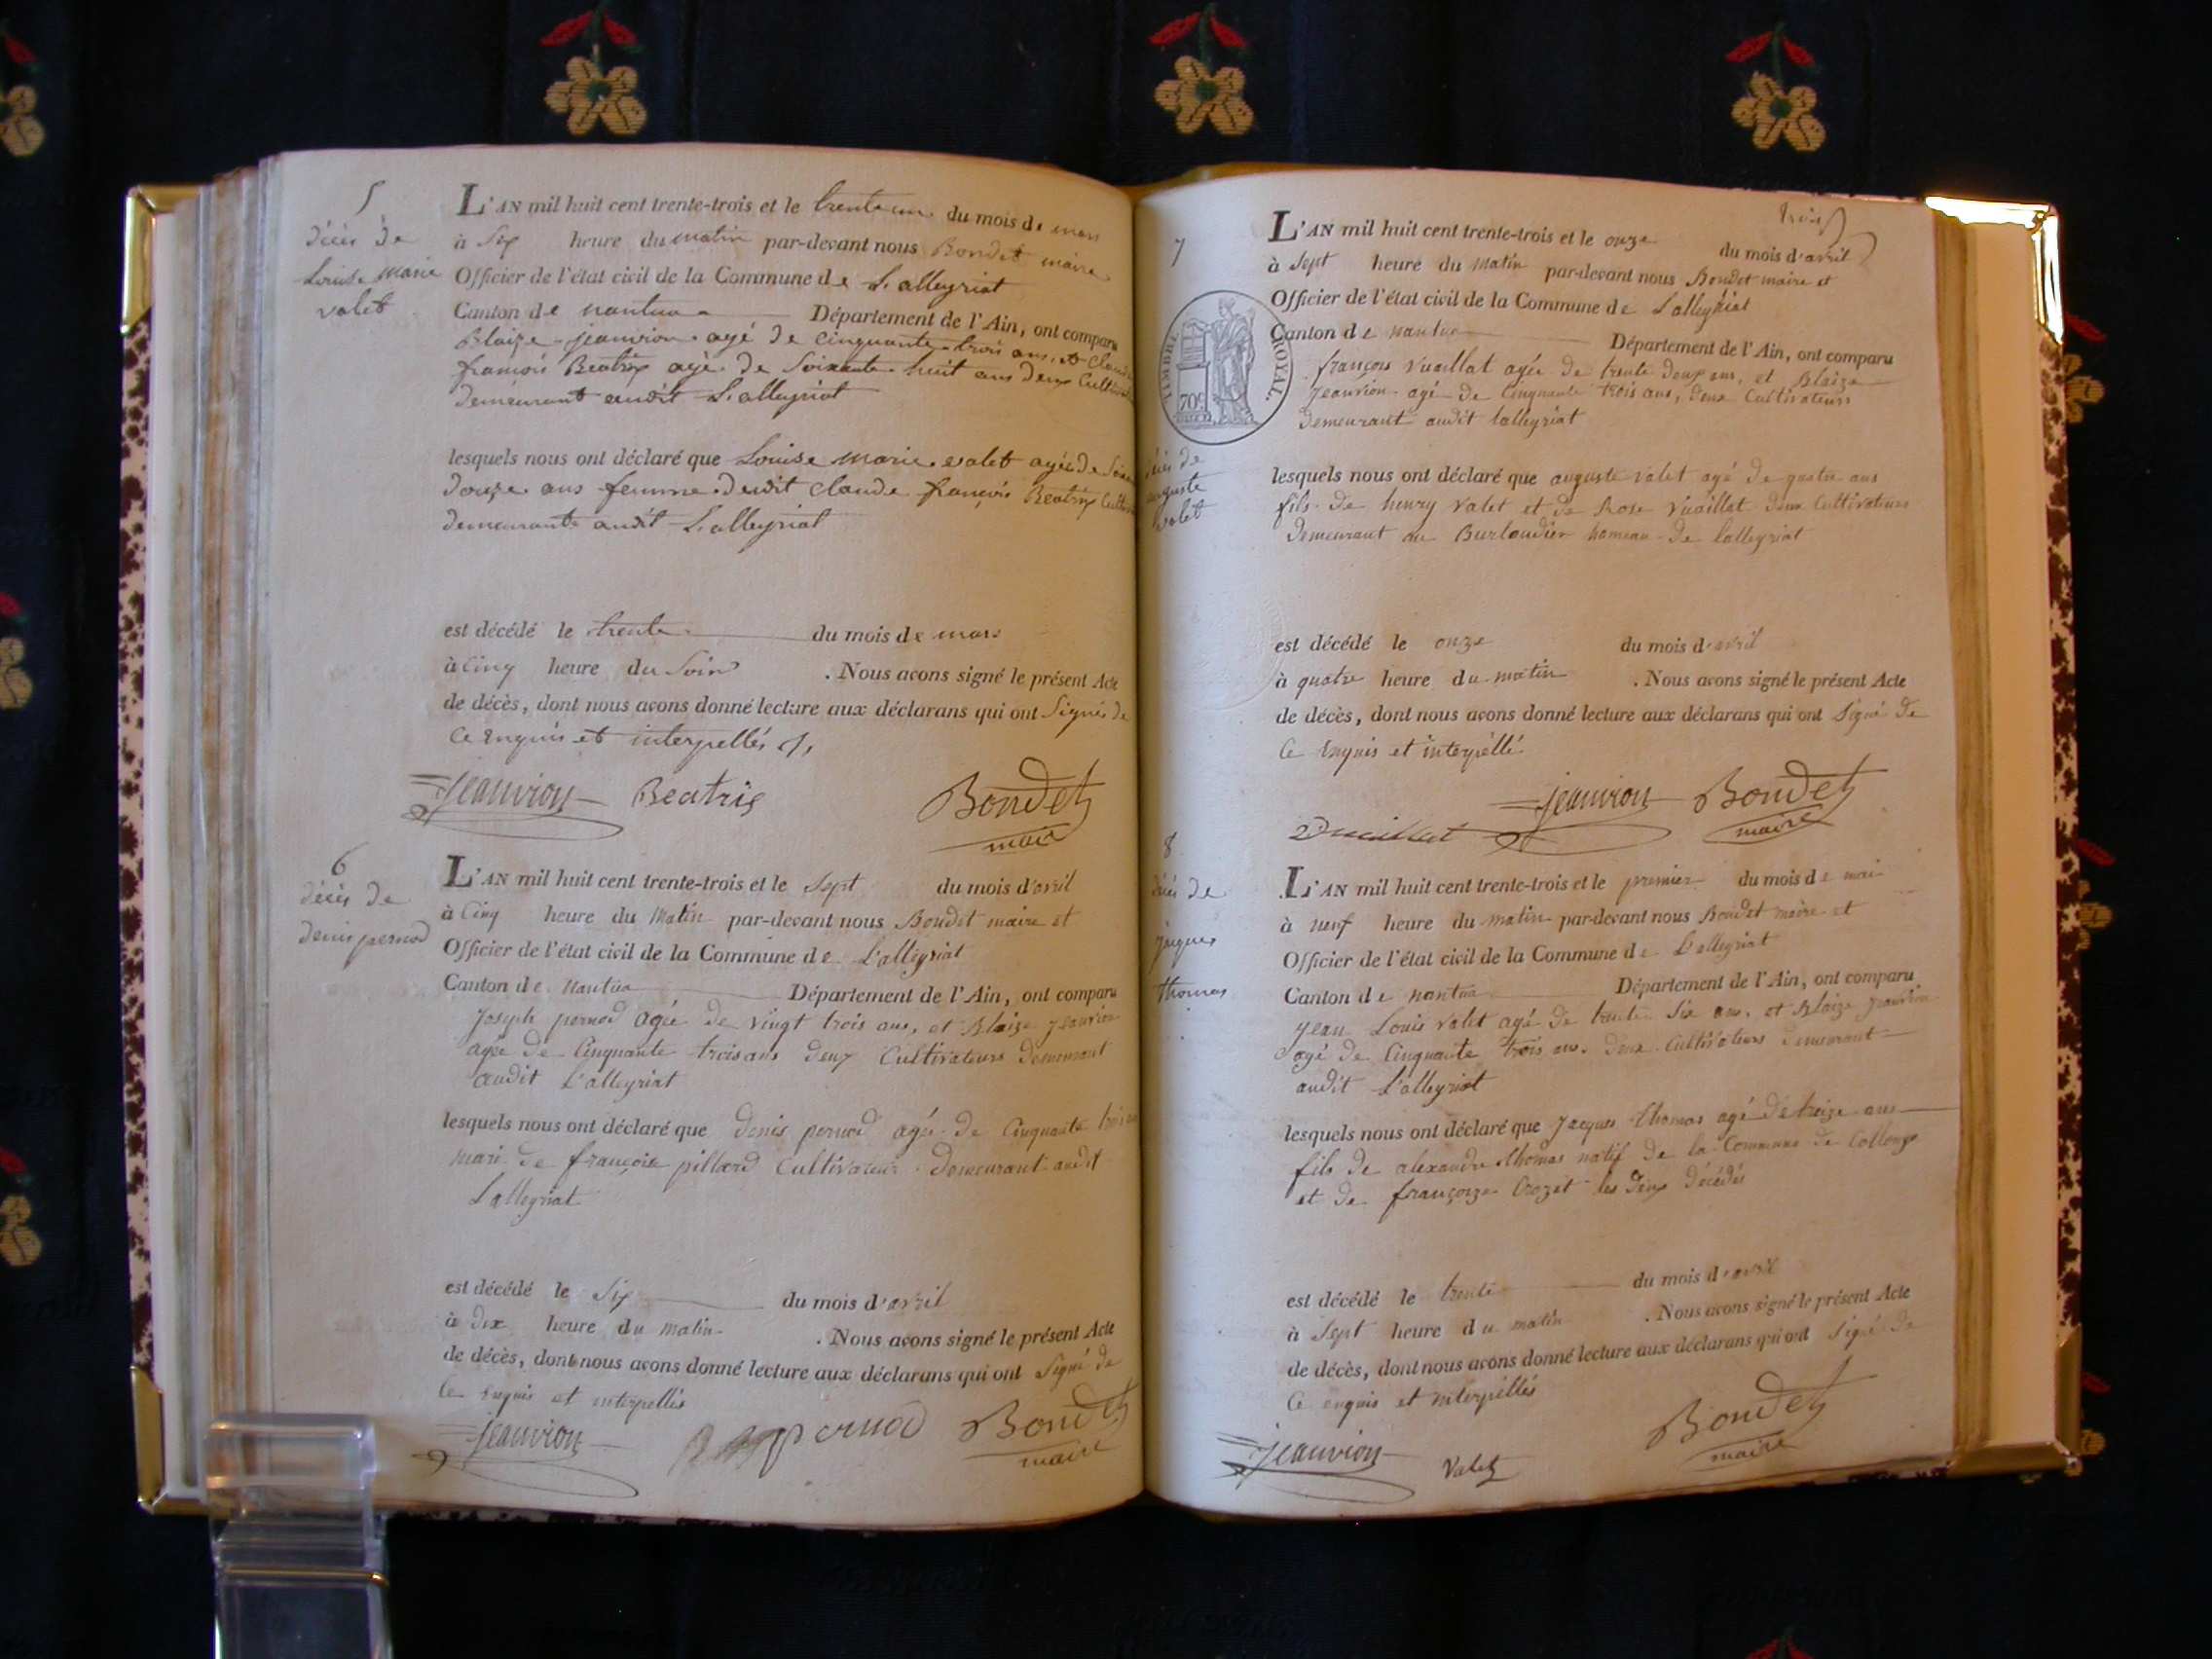 5
décès de
Louise Marie
valet
L'AN mil huit cent trente-trois et le trente un du mois de mars
à Six heure du matin par-devant nous Bondet maire
Officier de l'état civil de la Commune de L'alleyriat
Canton de nantua Département de l'Ain, ont comparu
Blaize jeanvion agé de cinquante trois ans, et Claude
françois Beatrix agé de Soixante huit ans deux
demeurant audit L'alleyriat
lesquels nous ont déclaré que Louise marie valet agée de
douze ans femme dudit Claude françois Beatrix
demeurante audit L'alleyriat
est décédé le trente du mois de mars
à Cinq heure du Soir . Nous avons signé le présent Acte
de décès, dont nous avons donné lecture aux déclarans qui ont Signés de
Ce Enquis et interpellés
Jeanvion Beatrix Bondet
maire
6
décès de
denis pernod
L'AN mil huit cent trente-trois et le Sept du mois d'avril
à Cinq heure du Matin par-devant nous Bondet maire et
Officier de l'état civil de la Commune de L'alleyriat
Canton de Nantua Département de l'Ain, ont comparu
Joseph pernod agée de vingt trois ans, et Blaize jeanvion
agée de Cinquante trois ans deux Cultivateurs demeurant
audit L'alleyriat
lesquels nous ont déclaré que denis pernod agée de Cinquante trois
mari de françoise pillard Cultivateur demeurant audit
L'alleyriat
est décédé le Six du mois d'avril
à dix heure du matin . Nous avons signé le présent Acte
de décès, dont nous avons donné lecture aux déclarans qui ont Signé de
Ce enquis et interpellés
jeanvion pernod Bondet
maire
trois
7
TIMBRE ROYAL.
70c
décès de
auguste
valet
L'AN mil huit cent trente-trois et le onze du mois d'avril
à Sept heure du Matin par-devant nous Bondet maire et
Officier de l'état civil de la Commune de Lalleyriat
Canton de nantua Département de l'Ain, ont comparu
françois Vuaillat agée de trente deux ans, et Blaize
Jeanvion agé de Cinquante trois ans, deux Cultivateurs
demeurant audit lalleyriat
lesquels nous ont déclaré que auguste valet agé de quatre ans
fils de henry valet et de Rose Vuaillat deux Cultivateurs
demeurant au Burlandier hameau de lalleyriat
est décédé le onze du mois d'avril
à quatre heure du matin . Nous avons signé le présent Acte
de décès, dont nous avons donné lecture aux déclarans qui ont Signé de
Ce Enquis et interpéllé
jeanvion Bondet
Vuaillat maire
8
décès de
jacques
thomas
L'AN mil huit cent trente-trois et le premier du mois de mai
à neuf heure du matin par-devant nous Bondet maire et
Officier de l'état civil de la Commune de Lalleyriat
Canton de nantua Département de l'Ain, ont comparu
jean Louis valet agé de trente Six ans, et Blaize jeanvion
agé de Cinquante trois ans. deux Cultivateurs demeurant
audit L'alleyriat
lesquels nous ont déclaré que Jacques thomas agé de treize ans
fils de alexandre thomas natif de la Commune de Collonge
et de françoize Crozet les deux décédés
est décédé le trente du mois d'avril
à Sept heure du matin . Nous avons signé le présent Acte
de décès, dont nous avons donné lecture aux déclarans qui ont Signé de
Ce enquis et interpéllés
jeanvion Valet Bondet
maire